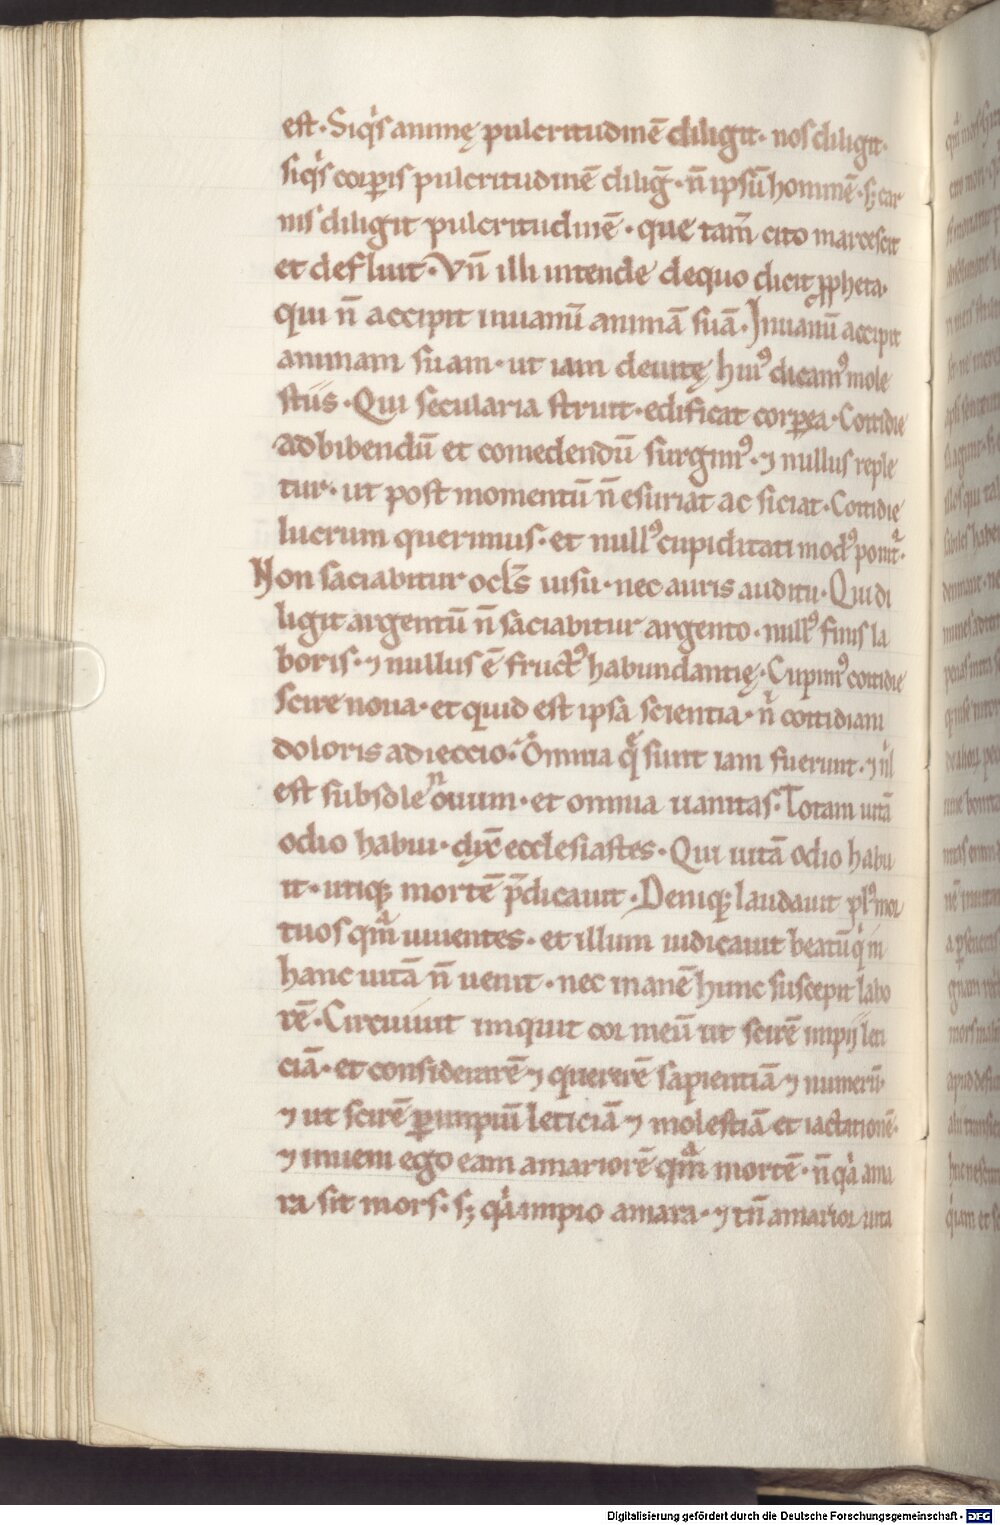 est. Siqͥs animę pulcritudinē diligit. nos diligit.
siqͥs corꝑis pulcritudinē dilig̅. n̅ ipsū hominē. sꝫ car
nis diligit pulcritudinē. que tam̅ cito marcescit
et defluit. Vn̅ illi intende dequo dicit ꝓpheta.
qui n̅ accipit inuanū animā suā. Inuanū accipit
animam suam. ut iam deuitę huiꝰ dicamꝰ mole
stiis. Qui secularia struit. edificat corꝑea. Cottidie
adbibendū et comedendū surgimꝰ. ⁊ nullus reple
tur. ut post momentū n̅ esuriat ac siciat. Cottidie
lucrum querimus. et nullꝰ cupiditati modꝰ ponit᷑.
Non saciabitur ocl̅s uisu. nec auris auditu. Qui di
ligit argentū n̅ saciabitur argento. nullꝰ finis la
boris. ⁊ nullus ē fructꝰ habundantię. Cupimꝰ cottidie
scire noua. et quid est ipsa scientia. nͥ cottidiani
doloris adieccio. Omnia q̄ sunt iam fuerunt. ⁊ nͥl
est subsole nouum. et omnia uanitas. Totam uitā
odio habui. dix̅ ecclesiastes. Qui uitā odio habu
it. utiqꝫ mortē p̅dicauit. Deniqꝫ laudauit plꝰ mor
tuos qm̅ uiuentes. et illum iudicauit beatū qͥ in
hanc uitā n̅ uenit. nec inanē hunc suscepit labo
rē. Circuiuit inquit cor meū ut scirē impij leti
ciā. et considerarē ⁊ quererē sapientiā ⁊ numerū.
⁊ ut scirē ꝑ impiū leticiā ⁊ molestiā et iactationē.
⁊ inueni ego eam amariorē qm̅ mortē. n̅ qͣ ama
ra sit mors. sꝫ qͣ impio amara. ⁊ tn̅ amarior uita
Digitalisierung gefördert durch die Deutsche Forschungsgemeinschaft - DFG